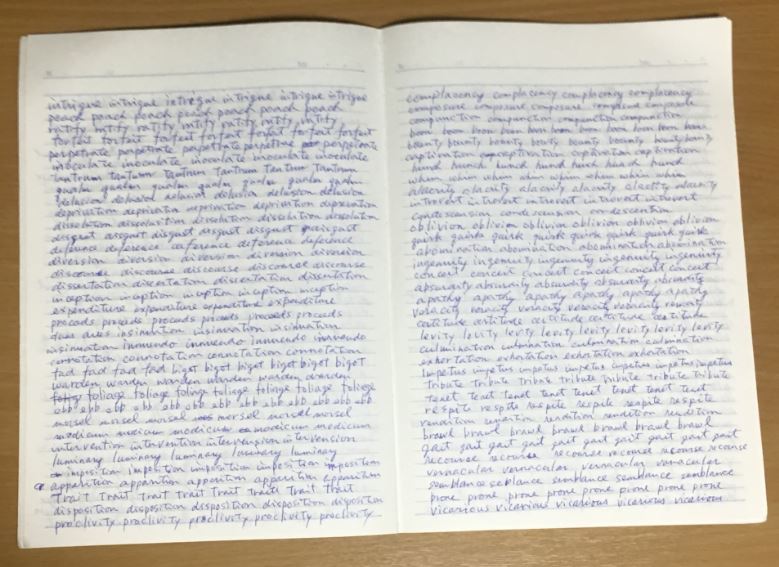 intrigue intrigue intrigue intrigue intrigue
poach poach poach poach poach poach
ratify ratify ratify ratify ratify ratify
forfeit forfeit forfeit forfeit forfeit forfeit
perpetrate perpetrate perpetrate
inoculate inoculate inoculate inoculate inoculate
Tantrum Tantrum Tantrum Tantrum Tantrum Tantrum
delusion delusion delusion delusion delusion delusion
deprivation deprivation deprivation deprivation deprivation
dissolution dissolution dissolution dissolution dissolution
disgust disgust disgust disgust disgust
deference deference deference deference deference
diversion diversion diversion diversion diversion
discourse discourse discourse discourse discourse
dissertation dissertation dissertation dissertation
inception inception inception inception inception
expenditure expenditure expenditure expenditure
proceeds proceeds proceeds proceeds proceeds
dues dues insinuation insinuation insinuation
insinuation innuendo innuendo innuendo innuendo
connotation connotation connotation connotation
fad fad fad fad bigot bigot bigot bigot bigot
warden warden warden warden warden
foliage foliage foliage foliage foliage foliage
ebb ebb ebb ebb ebb ebb ebb ebb ebb ebb
morsel morsel morsel morsel morsel morsel
modicum modicum modicum modicum modicum
intervention intervention intervension intervension
luminary luminary luminary luminary luminary
imposition imposition imposition imposition imposition
apparition apparition apparition apparition apparition
Trait Trait Trait Trait Trait Trait Trait Trait
disposition disposition disposition disposition disposition
proclivity proclivity proclivity proclivity proclivity
complacency complacency complacency complacency
composure composure composure composure composure
compunction compunction compunction compunction
boon boon boon boon boon boon boon boon boon
bounty bounty bounty bounty bounty bounty bounty
captivation captivation captivation captivation
whim whim whim whim whim whim whim
alacrity alacrity alacrity alacrity alacrity alacrity
introvert introvert introvert introvert introvert
condescension condescension condescension
oblivion oblivion oblivion oblivion oblivion oblivion
quirk quirk quirk quirk quirk quirk quirk
abomination abomination abomination abomination
ingenuity ingenuity ingenuity ingenuity ingenuity
conceit conceit conceit conceit conceit conceit
absurdity absurdity absurdity absurdity absurdity
apathy apathy apathy apathy apathy apathy
veracity veracity veracity veracity veracity veracity
certitude certitude certitude certitude certitude
levity levity levity levity levity levity levity levity
culmination culmination culmination culmination
exhortation exhortation exhortation exhortation
impetus impetus impetus impetus impetus impetus
Tribute Tribute Tribute Tribute Tribute Tribute Tribute
tenet tenet tenet tenet tenet tenet tenet
respite respite respite respite respite respite
rendition rendition rendition rendition rendition
brawl brawl brawl brawl brawl brawl brawl
gait gait gait gait gait gait gait part part
recourse recourse recourse recourse recourse recourse
vernacular vernacular vernacular vernacular
semblance seblance semblance semblance semblance
prone prone prone prone prone prone prone
vicarious vicarious vicarious vicarious vicarious